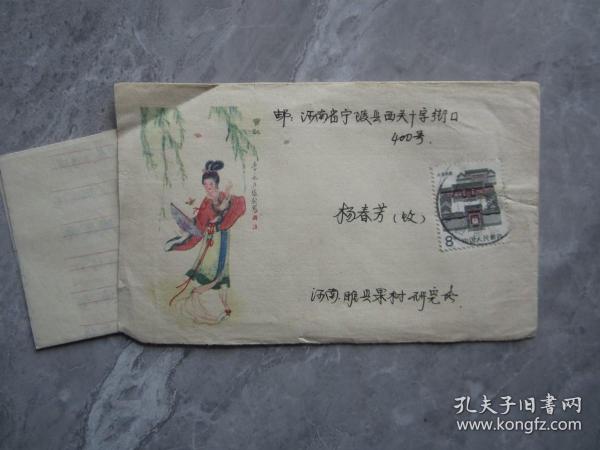 邮：河南省宁陵县西关十字街口
400号
杨春芳（收）
河南睢县果树研究所
8
中国人民邮政
孔夫子旧书网
www.kongfz.com